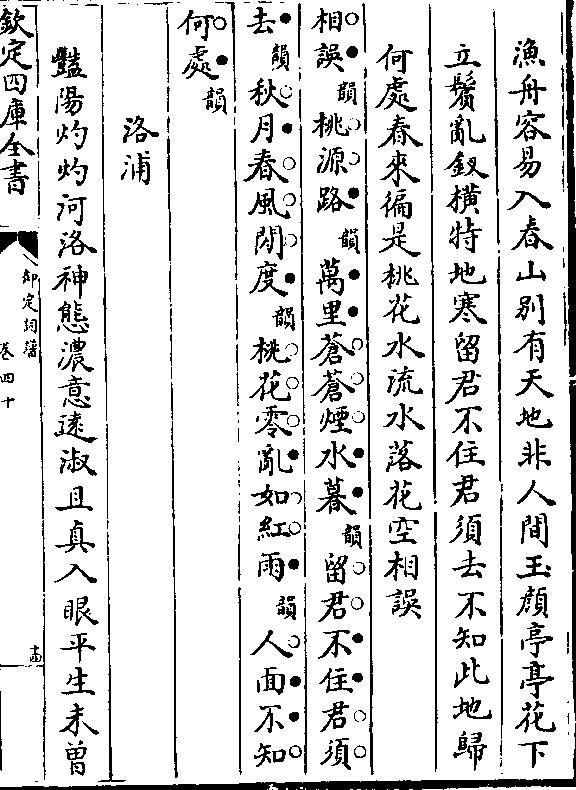 漁舟容易入春山別有天地非人間玉顔亭亭花下
立鬢亂釵橫特地寒留君不住君須去不知此地歸
何處春來徧是桃花水流水落花空相誤
相誤韻桃源路韻萬里蒼蒼煙水暮韻留君不住君須
去韻秋月春風閑度韻桃花零亂如紅雨韻人面不知
何處韻
洛浦
豔陽灼灼河洛神態濃意逺淑且真入眼平生未曾
欽定四庫全書
御定詞譜
卷四十